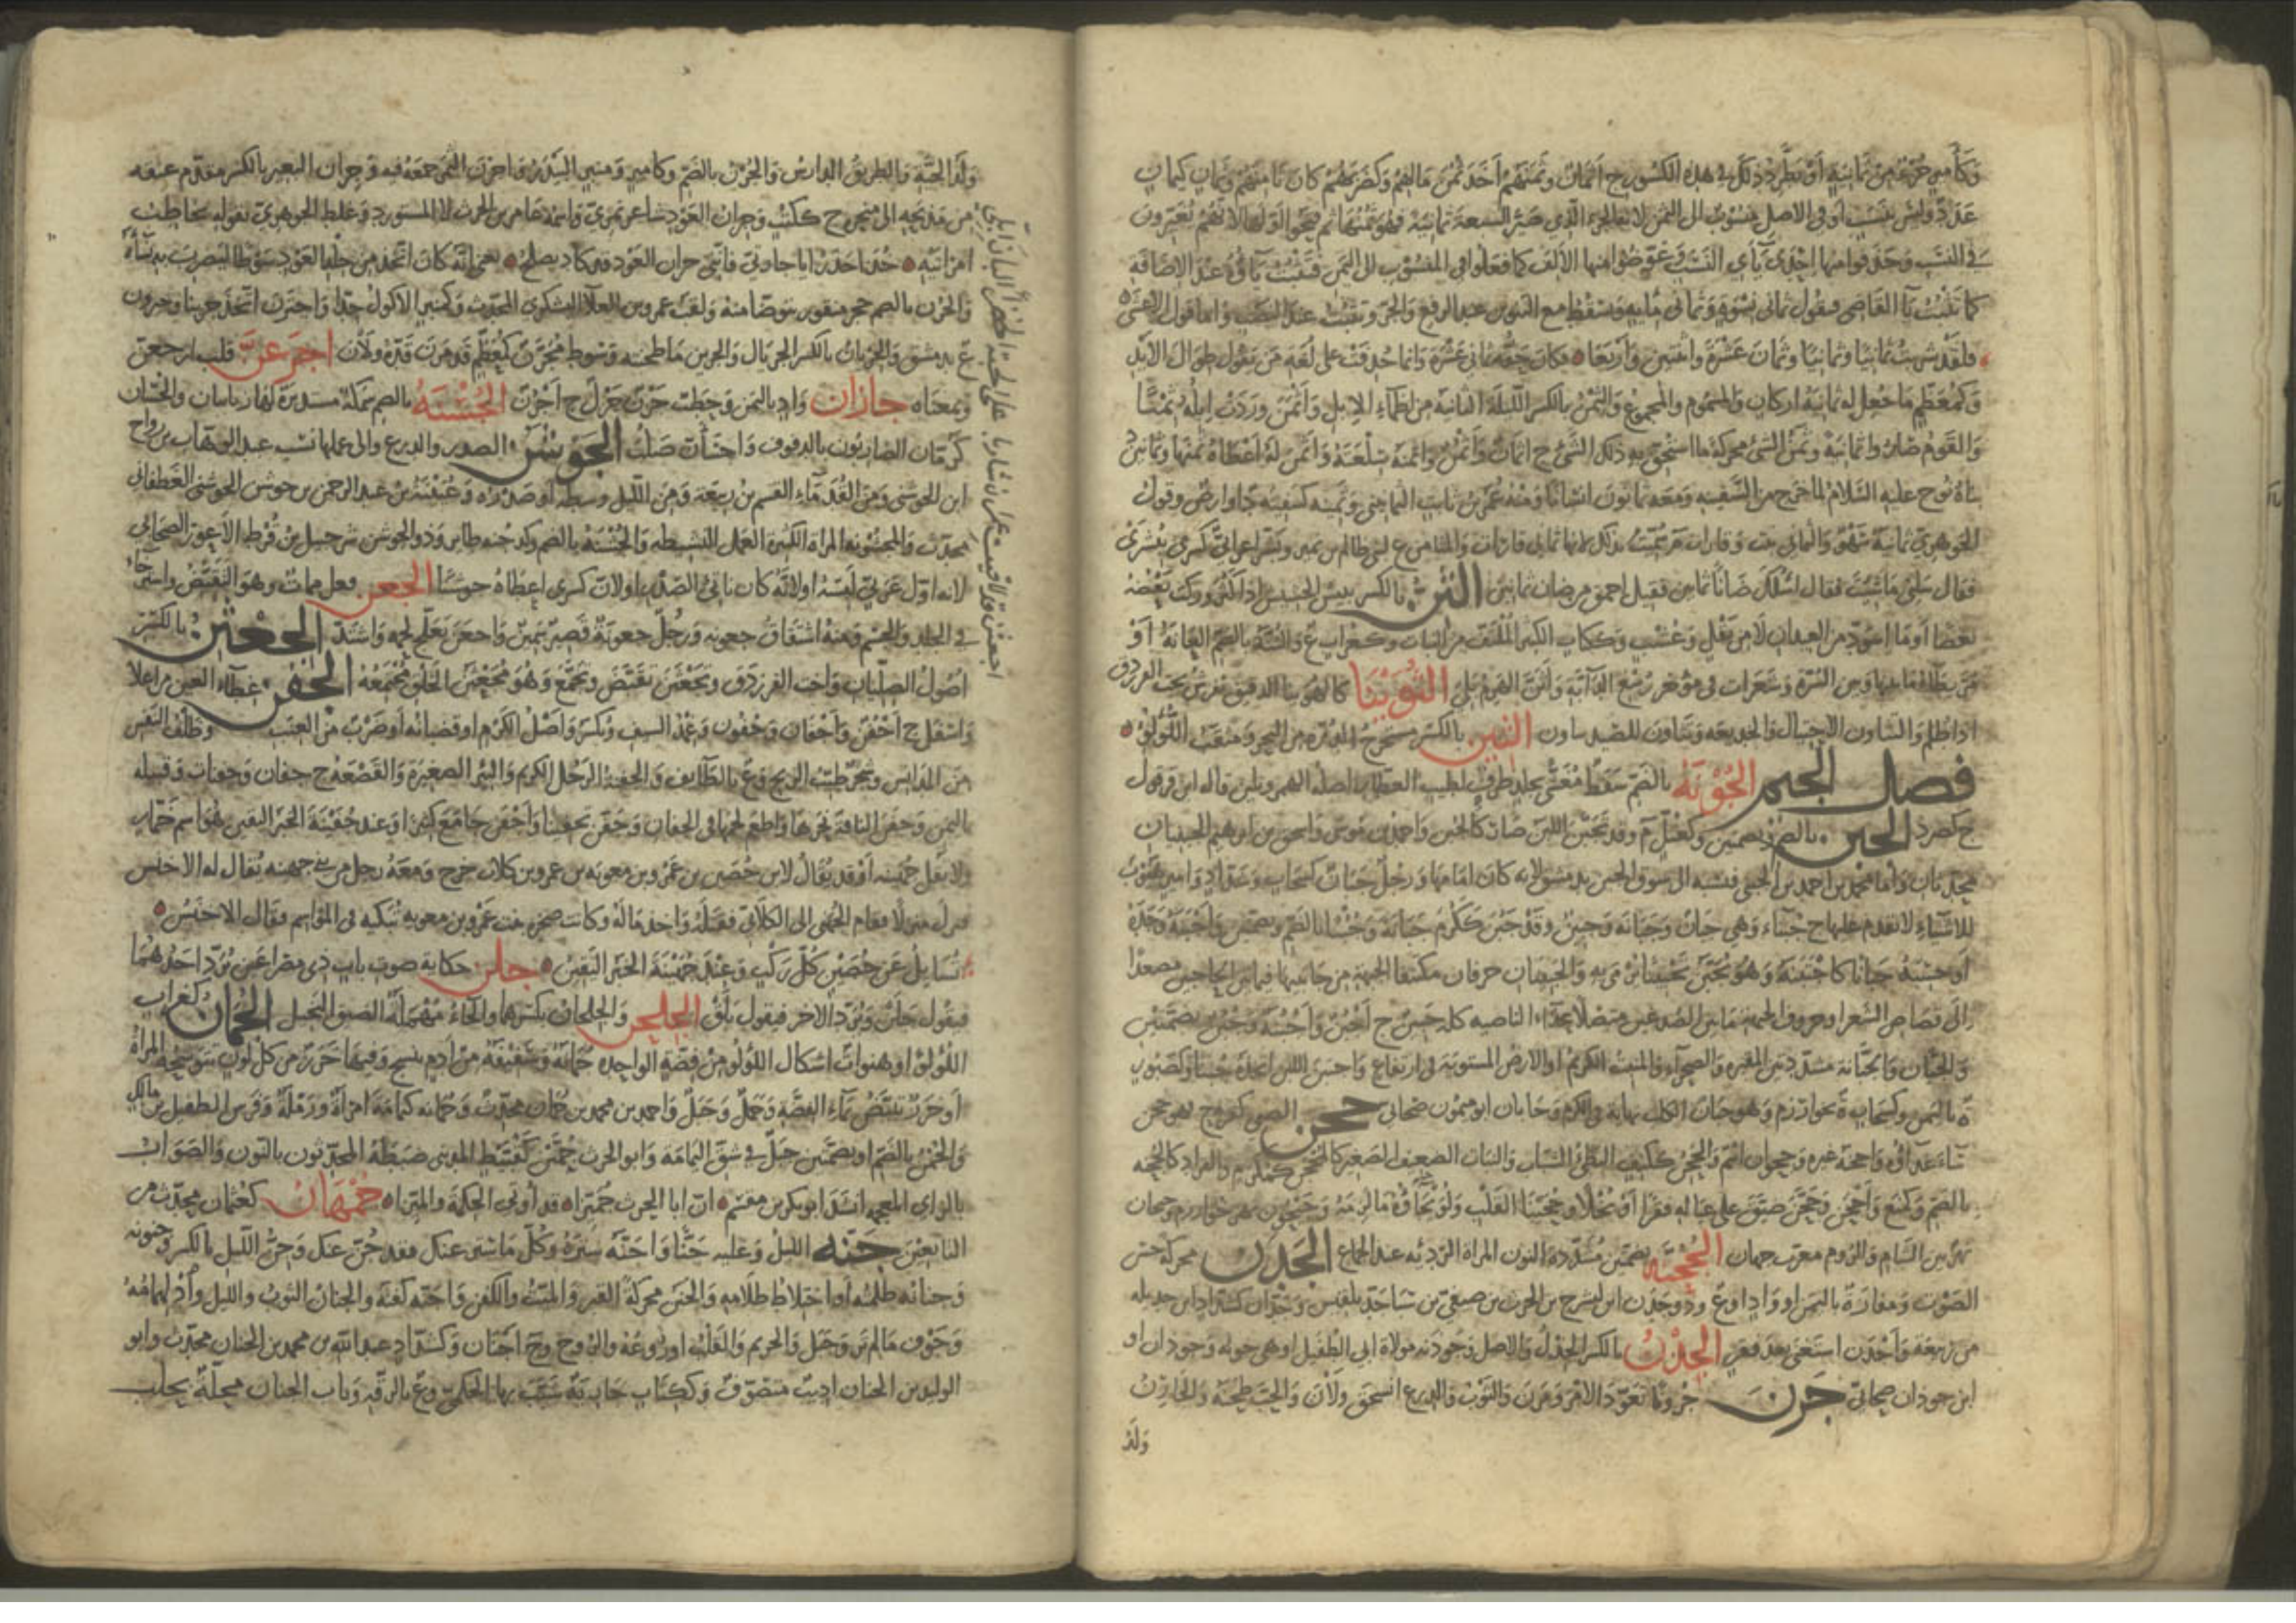 وكأمير جزء من ثمانية أو يطرد ذلك في هذه الكسور ج أثمان وثمنهم أخذ ثمن مالهم وكضربهم كان ثامنهم وثمان كيمان
عدد وليس بنسب أو في الأصل منسوب إلى الثمن لأنه الجزء الذي صير السبعة ثمانية فهو ثمنها ثم فتحوا أولها لأنهم يغيرون
في النسب وحذفوا منها إحدى يائي النسب وعوضوا منها الألف كما فعلوا في المنسوب إلى اليمن فتثبت ياؤه عند الإضافة
كما تثبت ياء القاضي فتقول ثماني نسوة وثماني مائة وتسقط مع التنوين عند الرفع والجر وتثبت عند النصب وأما قول الأعشى
ولقد شربت ثمانيا وثمانيا وثمان عشرة واثنتين وأربعا فكان حقه ثماني عشرة وإنما حذفت على لغة من يقول طوال الأيد
وكمعظم ما جعل له ثمانية أركان والمسموم والمجموع والثمن بالكسر الليلة الثامنة من أظماء الإبل وأثمن وردت إبله ثمنا
والقوم صاروا ثمانية وثمن الشيء محركة ما استحق به ذلك الشيء ج أثمان وأثمن وأثمنه سلعته وأثمن له أعطاه ثمنها وثمانين
بناه نوح عليه السلام لما خرج من السفينة ومعه ثمانون إنسانا ومنه عمر بن ثابت الثمانيني وثمينة كسفينة د أو أرض وقول
الجوهري ثمانية سهو والثماني نبت وقارات م سميت بذلك لأنها ثماني قارات والمثامن ع لبني ظالم بن نمير وبشر أعرابي كسرى ببشرى
فقال سلني ما شئت فقال أسألك ضأنا ثمانين فقيل أحمق من صاحب ضأن ثمانين الثن بالكسر يبيس الحشيش إذا كثر وركب بعضه
بعضا أو ما اسود من العيدان لا من بقل وعشب وككتاب الكثير الملتف من النبات وكغراب ع والثنة بالضم العانة أو
مريطاء ما بينها وبين السرة وشعرات في مؤخر رسغ الدابة وأثن الهرم بلي الثويناء كالهويناء الدقيق يفرش تحت الفرزدق
إذا طلم والتثاون الاحتيال والخديعة وتثاون للصيد تثاون الثين بالكسر مستخرج الدرة من البحر ومثقب اللؤلؤ
فصل الجيم الجؤنة بالضم سفط مغشى بجلد ظرف لطيب العطار أصله الهمز ويلين قاله ابن قرقول
ج كصرد الجبن بالضم وبضمتين وكعتل م وقد تجبن اللبن صار كالجبن وأحمد بن موسى وإسحق بن إبراهيم الجبنيان
محدثان وأما محمد بن أحمد الجبني فنسبة إلى سوق الجبن بدمشق لأنه كان إمامها ورجل جبان كسحاب وشداد وأمير هيوب
للأشياء لا يقدم عليها ج جبناء وهي جبان وجبانة وجبين وقد جبن ككرم جبانة وجبنا بالضم وبضمتين وأجبنه وجده
أو حسبه جبانا كاجتبنه وهو يجبن تجبينا يرمى به والجبينان حرفان مكتنفا الجبهة من جانبيها فيما بين الحاجبين مصعدا
إلى قصاص الشعر أو حروف الجبهة ما بين الصدغين متصلا بحذاء الناصية كله جبين ج أجبن وأجبنة وجبن بضمتين
والجبان والجبانة مشددتين المقبرة والصحراء والمنبت الكريم أو الأرض المستوية في ارتفاع واجتبن اللبن اتخذه جبنا وكصبور
ة باليمن وكسحابة ة بخوارزم وهو جبان الكلب نهاية في الكرم وجابان أبو ميمون صحابي جحن الصبي كفرح فهو جحن
ساء غذاؤه وأجحنه غيره وجحوان اسم والجحن ككتف البطيء الشباب والنبات الضعيف الصغير كالمجحن كمكرم والقراد كالجحنة
بالضم وكمنع وأجحن وجحن ضيق على عياله فقرا أو بخلا وجحينا القلب ولويحاؤه ما لزمه وجيحون نهر خوارزم وجيحان
نهر بين الشام والروم معرب جهان الجحنة بضمتين مشددة النون المرأة الردية عند الجماع الجدن محركة حسن
الصوت ومفازة باليمن أو واد أو ع وذو جدن ابن ليشرح بن الحرث بن صيفي بن سبأ جد بلقيس وجدان كشداد ابن جديلة
من ربيعة وأجدن استغنى بعد فقر الجذن بالكسر الجذل والأصل وجوذنة مولاة أبي الطفيل أو هي جونة وجوذان أو
ابن جوذان صحابي جرن جرونا تعود الأمر ومرن والثوب والدرع انسحق ولان والحب طحنه والجارن
ولد
ولد الحية والطريق الدارس والجرن بالضم وكأمير ومنبر البيدر وأجرن التمر جمعه فيه وجران البعير بالكسر مقدم عنقه
من مذبحه إلى منحره ج ككتب وجران العود شاعر نمري واسمه عامر بن الحرث لا المستورد وغلط الجوهري بقوله يخاطب
امرأتيه خذا حذرا يا جارتي فإنني جران العود قد كاد يصلح يعني أنه كان اتخذ من جلد العود سوطا ليضرب به نساءه
والجرن بالضم حجر منقور يتوضأ منه ولقب عمرو بن العلاء اليشكري المحدث وكمنبر الأكول جدا واجترن اتخذ جرينا وجيرون
ع بدمشق والجريان بالكسر الجريال والجرين ما طحنته وسوط مجرن كمعظم قد مرن قده ولان اجرعن قلب ارجعن
وبمعناه جازان واد باليمن وحطب جزن جزل ج أجزن الجشنة بالضم سمكة مستديرة لها رباسان والجشان
كرمان الضاربون بالدفوف واجشأن صلب الجوشن الصدر والدرع وإلى عملها نسب عبد الوهاب بن رواح
ابن الجوشني ومن القدماء القسم بن ربيعة ومن الليل وسطه أو صدره وعيينة بن عبد الرحمن بن جوشن الجوشني الغطفاني
محدث والمجشونة المرأة الكثيرة العمل النشيطة والجشنة بالضم وكدجنة طائر وذو الجوشن شرحبيل بن قرط الأعور الصحابي
لأنه أول عربي لبسه أو لأنه كان ناتئ الصدر أو لأن كسرى أعطاه جوشنا الجعن فعل ممات وهو التقبض واسترخاء
في الجلد والجسم ومنه اشتقاق جعونة ورجل جعونة قصير سمين وأجعن تعلج لحمه واشتد الجعثن بالكسر
أصول الصليان وأخت الفرزدق وتجعثن تقبض وتجمع وهو مجعثن الخلق مجتمعه الجفن غطاء العين من أعلا
وأسفل ج أجفن وأجفان وجفون وغمد السيف ويكسر وأصل الكرم أو قضبانه أو ضرب من العنب وظلف النفس
من المدانس وشجر طيب الريح وع بالطائف والجفنة الرجل الكريم والبئر الصغيرة والقصعة ج جفان وجفنات وقبيلة
باليمن وجفن الناقة نحرها وأطعم لحمها في الجفان وجفن تجفينا وأجفن جامع كثيرا وعند جفينة الخبر اليقين هو اسم خمار
ولا تقل جهينة أو قد يقال لأن حصين بن عمرو بن معوية بن عمرو بن كلاب خرج ومعه رجل من بني جهينة يقال له الأخنس
فنزلا منزلا فقام الجهني إلى الكلابي فقتله وأخذ ماله وكانت صخرة بنت عمرو بن معوية تبكيه في المواسم فقال الأخنس
تسايل عن حصين كل ركب وعند جهينة الخبر اليقين جلن حكاية صوت باب ذي مصراعين يرد أحدهما
فيقول جلن ويرد الآخر فيقول بلق الجلحن والجلحان بكسرهما والحاء مهملة الضيق البخيل الجمان كغراب
اللؤلؤ أو هنوات أشكال اللؤلؤ من فضة الواحدة جمانة وسفيفة من أدم ينسج وفيها خرز من كل لون تتوشحه المرأة
أو خرز يبيض بماء الفضة وجمل وجبل وأحمد بن محمد بن جمان محدث وجمانة كثمامة امرأة ورملة وفرس الطفيل بن مالك
والجمن بالضم أو بضمتين جبل في شق اليمامة وأبو الحرث جمين كقبيط المديني ضبطه المحدثون بالنون والصواب
بالزاي المعجمة أنشد أبو بكر بن مقسم إن أبا الحرث جميزا قد أوتي الحكمة والميزا جمهان كعثمان محدث من
التابعين جنه الليل وعليه جنا وأجنه ستره وكل ما ستر عنك فقد جن عنك وجن الليل بالكسر وجنونه
وجنانه ظلمته أو اختلاط ظلامه والجنن محركة القبر والميت والكفن وأجنه كفنه والجنان الثوب والليل وادلهمامه
وجوف ما لم تر وجبل والحريم والقلب أو روعه والروح وج أجنان وكشداد عبد الله بن محمد بن الجنان محدث وأبو
الوليد بن الجنان أديب متصوف وككتاب جارية شبب بها الحكمي وع بالرقة وباب الجنان محلة بحلب